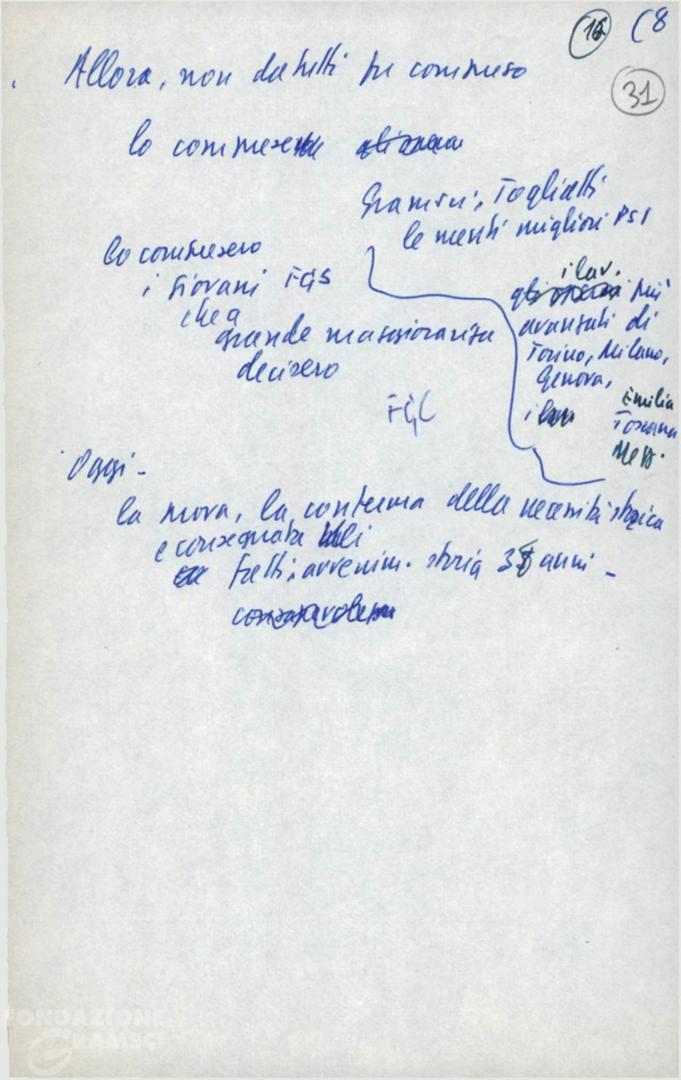 15 (8
31
Allora, non da tutti fu compreso
lo compresero
Gramsci, Togliatti
le menti migliori PSI
lo compresero
i giovani FGS
che a
grande maggioranza
decisero
i lav.
gli operai più
avanzati di
Torino, Milano,
Genova,
Emilia
Toscana
FGC
Oggi -
la prova, la conferma della necessità storica
è consegnata
fatti, avvenim. storia 35 anni -
FONDAZIONE
GRAMSCI